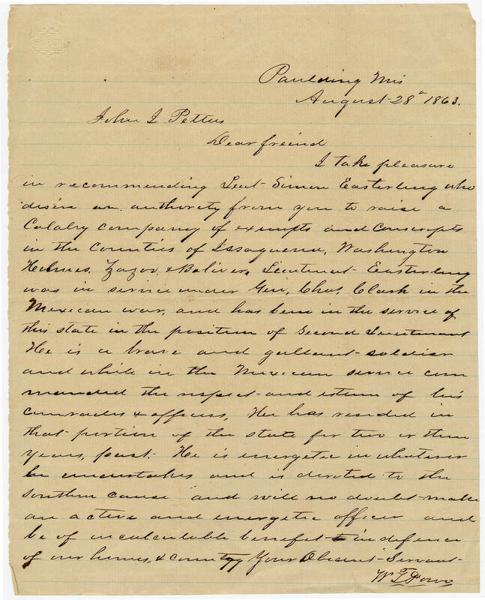 Paulding Mis
August 28th 1863.
John J Pettus
Dear friend
I take pleasure
in recommending Leut Simon Easterling who
desire an authority from you to raise a
Calalry company of exempts and Conscripts
in the Counties of Issaquena, Washington
Holmes, Yazoo & Boliver, Lieutenant Easterling
was in service under Gen, Chas, Clark in the
Mexican war, and has been in the service of
this state in the position of Second Lieutenant
He is a brave and gallant soldier
and while in the Mexican service com
manded the respect and esteem of his
comrades & officers, He has resided in
that portion of the state for two or three
years, past. He is energetic in whatever
he undertakes and is devoted to the
southern cause and will no doubt make
an active and energetic officer and
be of incalculable benefit to indefence
of our homes, & country Your Obedient Servant